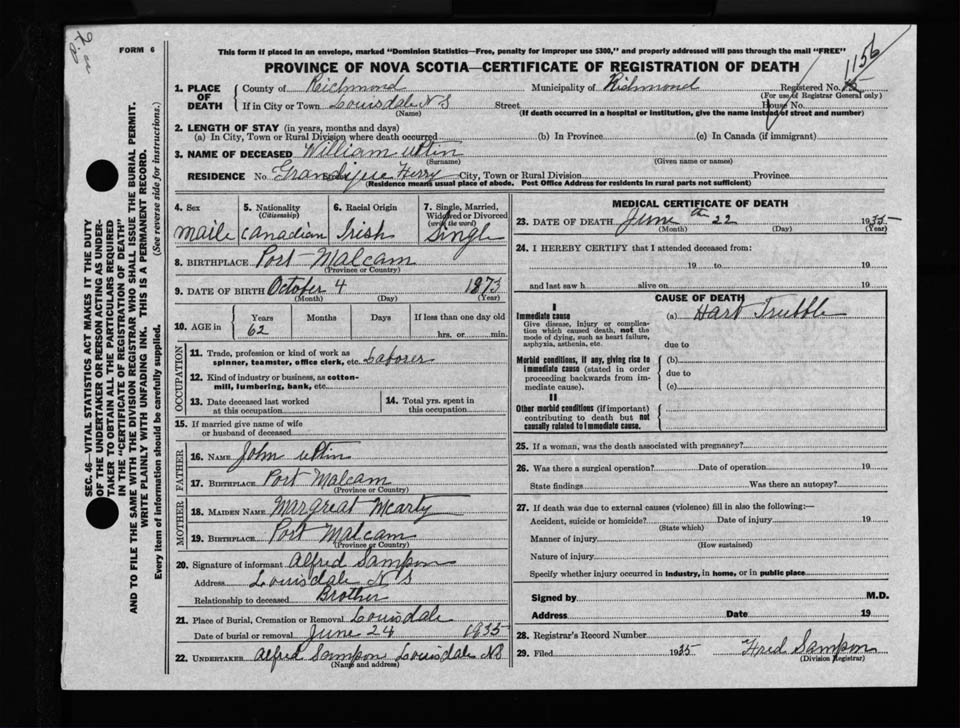 FORM 6
This form if placed in an envelope, marked "Dominion Statistics—Free, penalty for improper use $300," and properly addressed will pass through the mail "FREE"
PROVINCE OF NOVA SCOTIA—CERTIFICATE OF REGISTRATION OF DEATH
1156
1. PLACE OF DEATH
County of Reichmond Municipality of Richmond Registered No.
(For use of Registrar General only)
If in City or Town Louisdale N S Street House No.
(Name) (If death occurred in a hospital or institution, give the name instead of street and number)
2. LENGTH OF STAY (in years, months and days)
(a) In City, Town or Rural Division where death occurred (b) In Province (c) In Canada (if immigrant)
3. NAME OF DECEASED William
(Surname) (Given name or names)
RESIDENCE No. Grandique Ferry City, Town or Rural Division Province
(Residence means usual place of abode. Post Office Address for residents in rural parts not sufficient)
4. Sex
Maile
5. Nationality
(Citizenship)
Canadian
6. Racial Origin
Irish
7. Single, Married, Widowed or Divorced
(write the word)
Single
8. BIRTHPLACE Port-Malcam
(Province or Country)
9. DATE OF BIRTH October 4 1873
(Month) (Day) (Year)
10. AGE in
Years Months Days If less than one day old
62 hrs. or min.
OCCUPATION
11. Trade, profession or kind of work as spinner, teamster, office clerk, etc. Laborer
12. Kind of industry or business, as cotton-mill, lumbering, bank, etc.
13. Date deceased last worked at this occupation
14. Total yrs. spent in this occupation
15. If married give name of wife or husband of deceased
FATHER
16. NAME John
17. BIRTHPLACE Port Malcam
(Province or Country)
MOTHER
18. MAIDEN NAME Margreat Mcarty
19. BIRTHPLACE Port Malcam
(Province or Country)
20. Signature of informant Alfred Sampon
Address Louisdale N S
Relationship to deceased Brother
21. Place of Burial, Cremation or Removal Louisdale
Date of burial or removal June 24 1935
22. UNDERTAKER Alfred Sampon Louisdale NS
(Name and address)
MEDICAL CERTIFICATE OF DEATH
23. DATE OF DEATH June th 22 1935
(Month) (Day) (Year)
24. I HEREBY CERTIFY that I attended deceased from:
19 to 19
and last saw h alive on 19
CAUSE OF DEATH
I
Immediate cause (a) Hart Trubble
Give disease, injury or complication which caused death, not the mode of dying, such as heart failure, asphyxia, asthenia, etc.
due to
Morbid conditions, if any, giving rise to immediate cause (stated in order proceeding backwards from immediate cause).
(b)
due to
(c)
II
Other morbid conditions (if important) contributing to death but not causally related to immediate cause.
25. If a woman, was the death associated with pregnancy?
26. Was there a surgical operation? Date of operation 19
State findings Was there an autopsy?
27. If death was due to external causes (violence) fill in also the following:—
Accident, suicide or homicide? Date of injury 19
(State which)
Manner of injury
(How sustained)
Nature of injury
Specify whether injury occurred in industry, in home, or in public place
Signed by M.D.
Address Date 19
28. Registrar's Record Number
29. Filed 1935 Fred Sampon
(Division Registrar)
SEC. 46—VITAL STATISTICS ACT MAKES IT THE DUTY
OF THE UNDERTAKER OR PERSON ACTING AS UNDER-
TAKER TO OBTAIN ALL THE PARTICULARS REQUIRED
IN THE "CERTIFICATE OF REGISTRATION OF DEATH"
AND TO FILE THE SAME WITH THE DIVISION REGISTRAR WHO SHALL ISSUE THE BURIAL PERMIT.
WRITE PLAINLY WITH UNFADING INK. THIS IS A PERMANENT RECORD.
Every item of information should be carefully supplied. (See reverse side for instructions.)